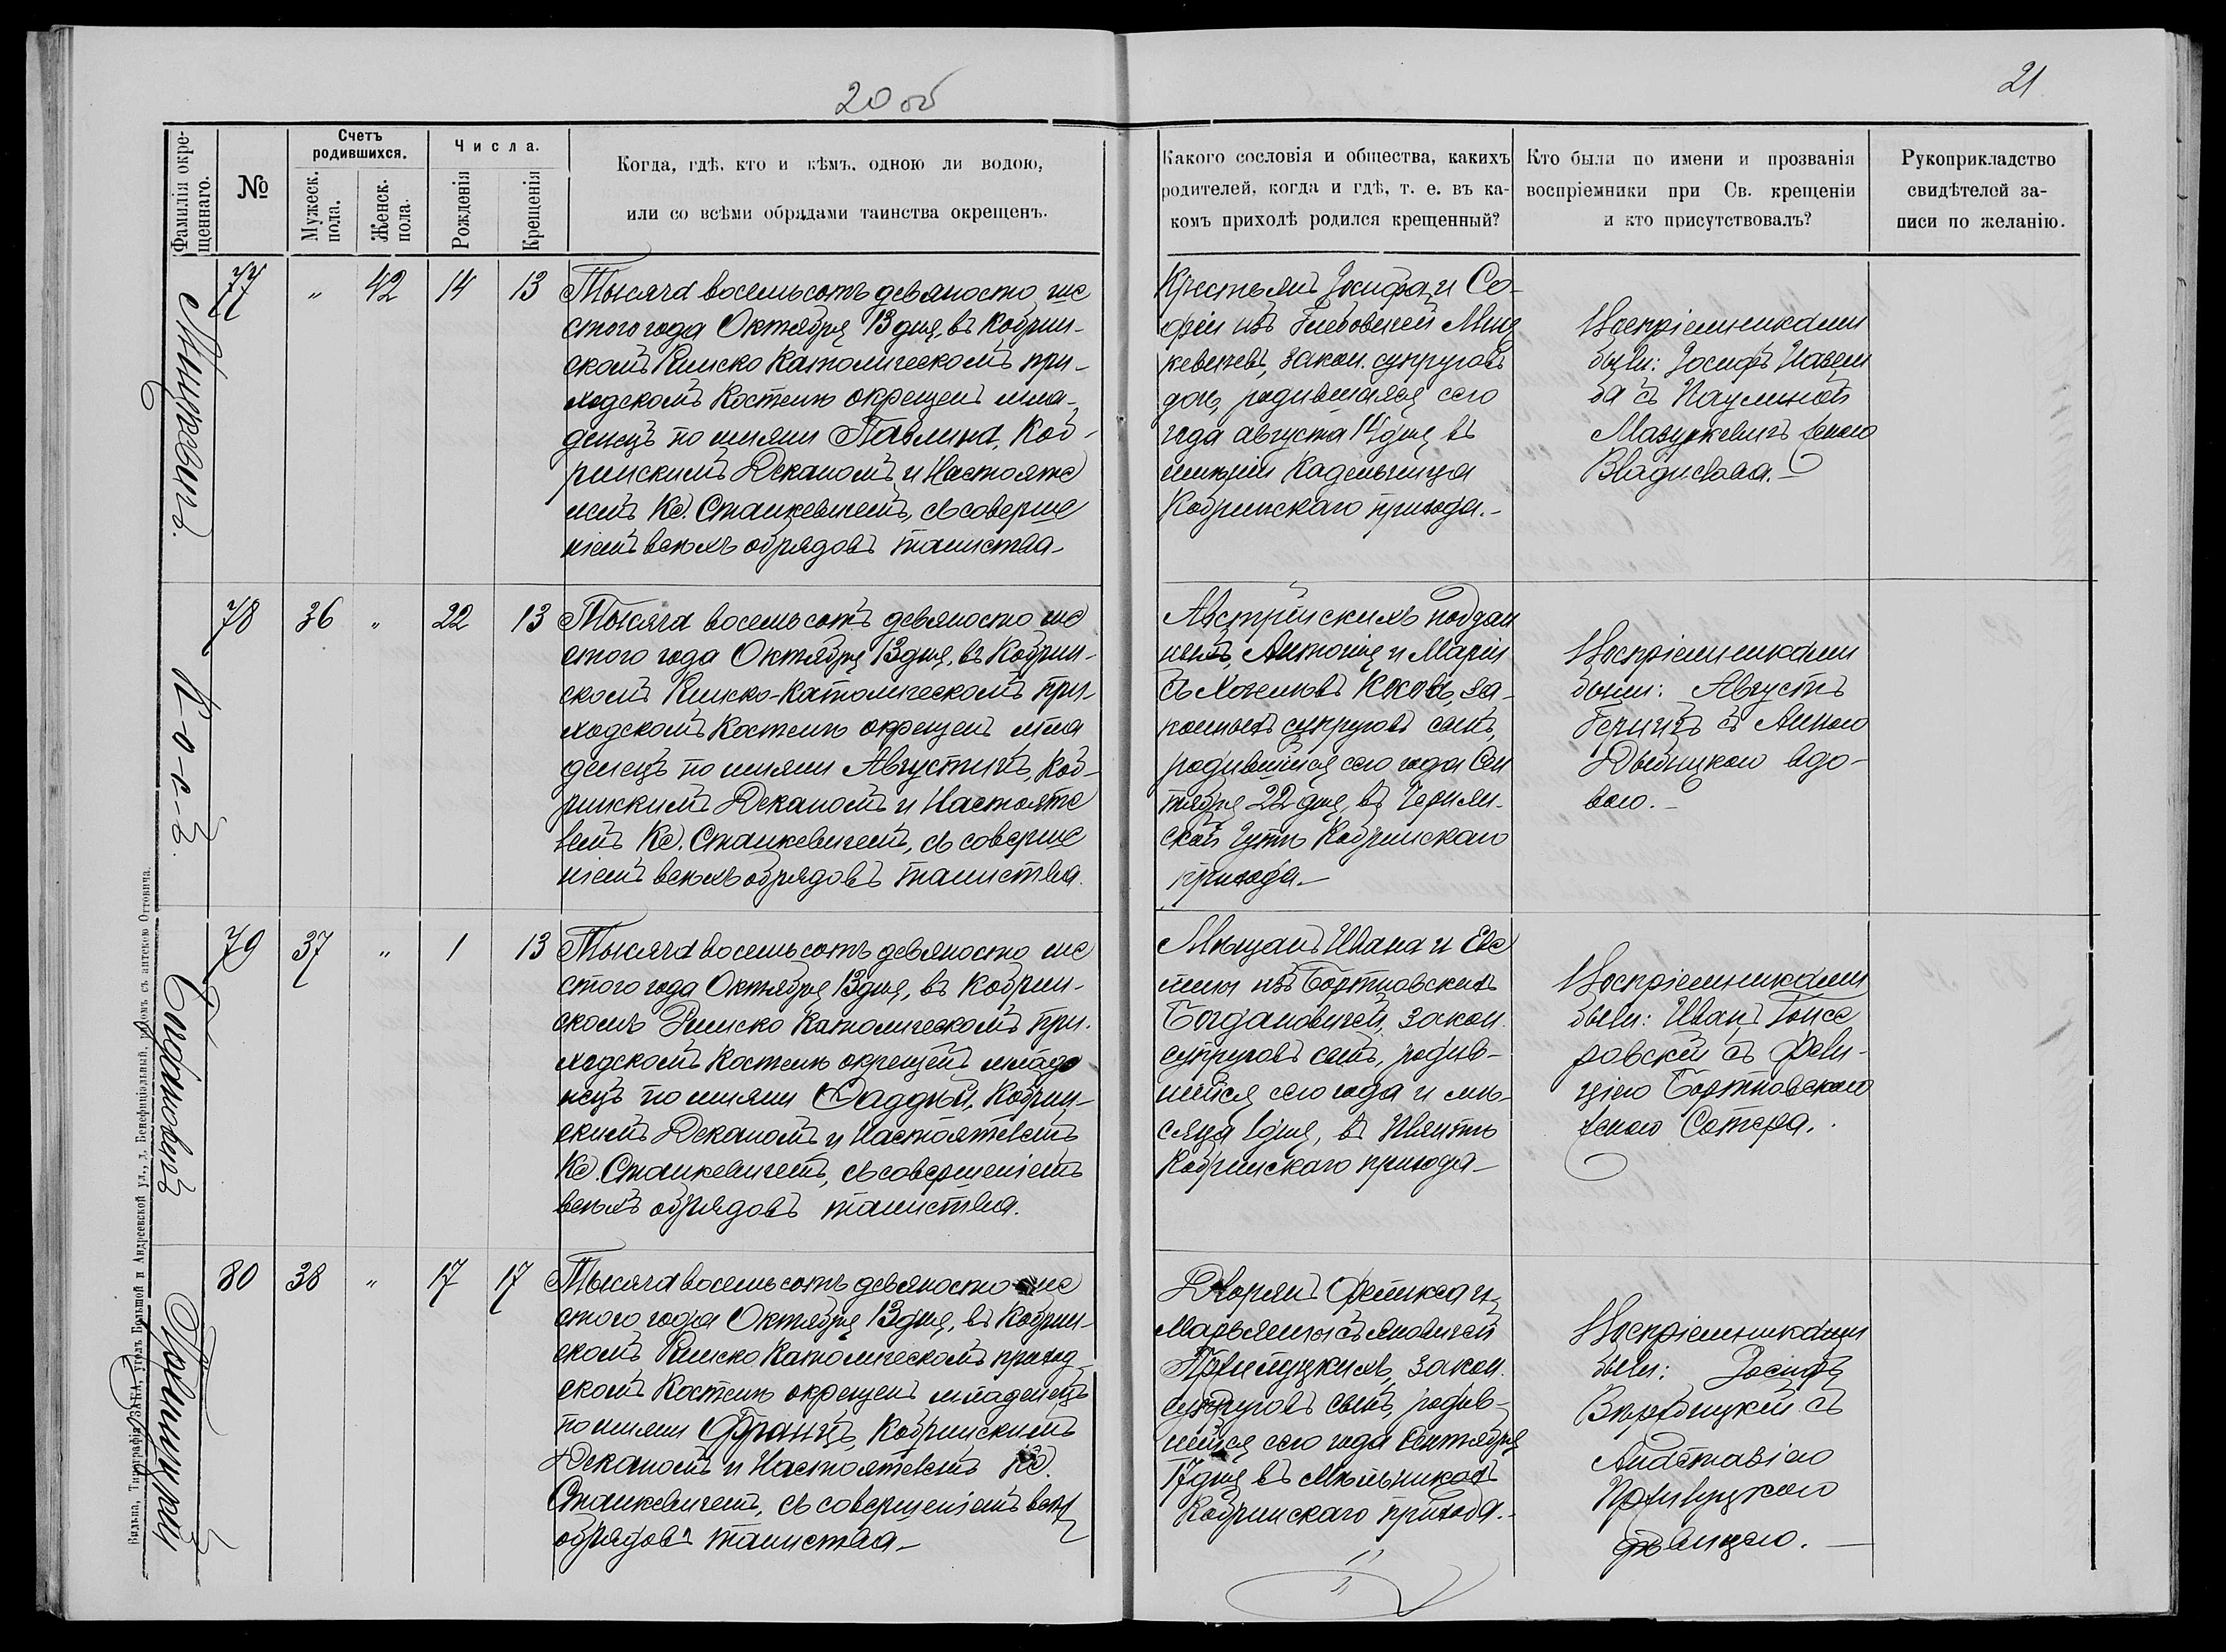 20 об
21
Фамилія окре-
щеннаго.
№
Счетъ
родившихся.
Мужеск.
пола.
Женск.
пола.
Числа.
Рожденія
Крещенія
Когда, гдѣ, кто и кѣмъ, одною ли водою,
или со всѣми обрядами таинства окрещенъ.
Какого сословія и общества, какихъ
родителей, когда и гдѣ, т. е. въ ка-
комъ приходѣ родился крещенный?
Кто были по имени и прозванія
воспріемники при Св. крещеніи
и кто присутствовалъ?
Рукоприкладство
свидѣтелей за-
писи по желанію.
77 " 42 14 13
Тысяча восемьсотъ девяносто ше
стого года Октября 13 дня, въ Кобрин-
скомъ Римско Католическомъ при-
ходскомъ Костелѣ окрещенъ мла-
денецъ по имени Павлина, Коб-
ринскимъ Деканомъ и Настояте
лемъ Кс. Станкевичемъ, съ соверше
ніемъ всѣхъ обрядовъ таинства
Крестьянъ Іосифа и Со-
фіи изъ Глебовичей Миц
кевичевъ, закон. супруговъ
дочь, родившаяся сего
года августа 14 дня въ
имѣніи
Кобринскаго прихода.
Воспріемниками
были: Іосифъ
съ Паулиной
Мазуркевичъ женою
Владислава.
78 36 " 22 13
К-о-с-ъ.
Тысяча восемьсотъ девяносто ше
стого года Октября 13 дня, въ Кобрин-
скомъ Римско-Католическомъ при-
ходскомъ Костелѣ окрещенъ мла
денецъ по имени Августинъ, Коб-
ринскимъ Деканомъ и Настояте
лемъ Кс. Станкевичемъ, съ соверше
ніемъ всѣхъ обрядовъ таинства.
Австрійскихъ поддан
ныхъ, Антонія и Маріи
Косовъ, за-
конныхъ супруговъ сынъ,
родившійся сего года Сен
тября 22 дня, въ
ской Гутѣ Кобринскаго
прихода.
Воспріемниками
были: Августъ
съ Анною
вдо-
вою.
79 37 " 1 13
Богдановичъ
Тысяча восемьсотъ девяносто ше
стого года Октября 13 дня, въ Кобрин-
скомъ Римско Католическомъ при-
ходскомъ Костелѣ окрещенъ младе
нецъ по имени Фаддей, Кобрин-
скимъ Деканомъ и Настоятелемъ
Кс. Станкевичемъ, съ совершеніемъ
всѣхъ обрядовъ таинства.
Мѣщанъ Ивана и
изъ Бортновскихъ
Богдановичей, закон.
супруговъ сынъ, родив-
шійся сего года и мѣ-
сяца 1 дня, въ
Кобринскаго прихода
Воспріемниками
были: Иванъ
съ Фели-
ціею Бортновскою
женою Сотера.
80 38 " 17 17
Тысяча восемьсотъ девяносто ше
стого года Октября 13 дня, въ Кобрин-
скомъ Римско Католическомъ приход-
скомъ Костелѣ окрещенъ младенецъ
по имени Францъ, Кобринскимъ
Деканомъ и Настоятелемъ Кс.
Станкевичемъ, съ совершеніемъ всѣхъ
обрядовъ таинства
Дворянъ Феликса и
Марьянны съ Яновичей
закон.
супруговъ сынъ, родив-
шійся сего года Сентября
17 дня въ Мѣльникахъ
Кобринскаго прихода.
Воспріемниками
были: Іосифъ
съ
Анастазіею
дѣвицею.
Вильна, Типографія ЗАКА, уголъ Большой и Андреевской ул., д. Бенефиціальный, рядомъ съ аптекою Оттовича.